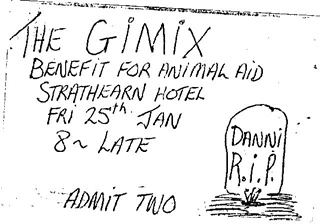 THE GIMIX
BENEFIT FOR ANIMAL AID
STRATHEARN HOTEL
FRI 25th JAN
8~ LATE
ADMIT TWO
DANNI
R.i.P.